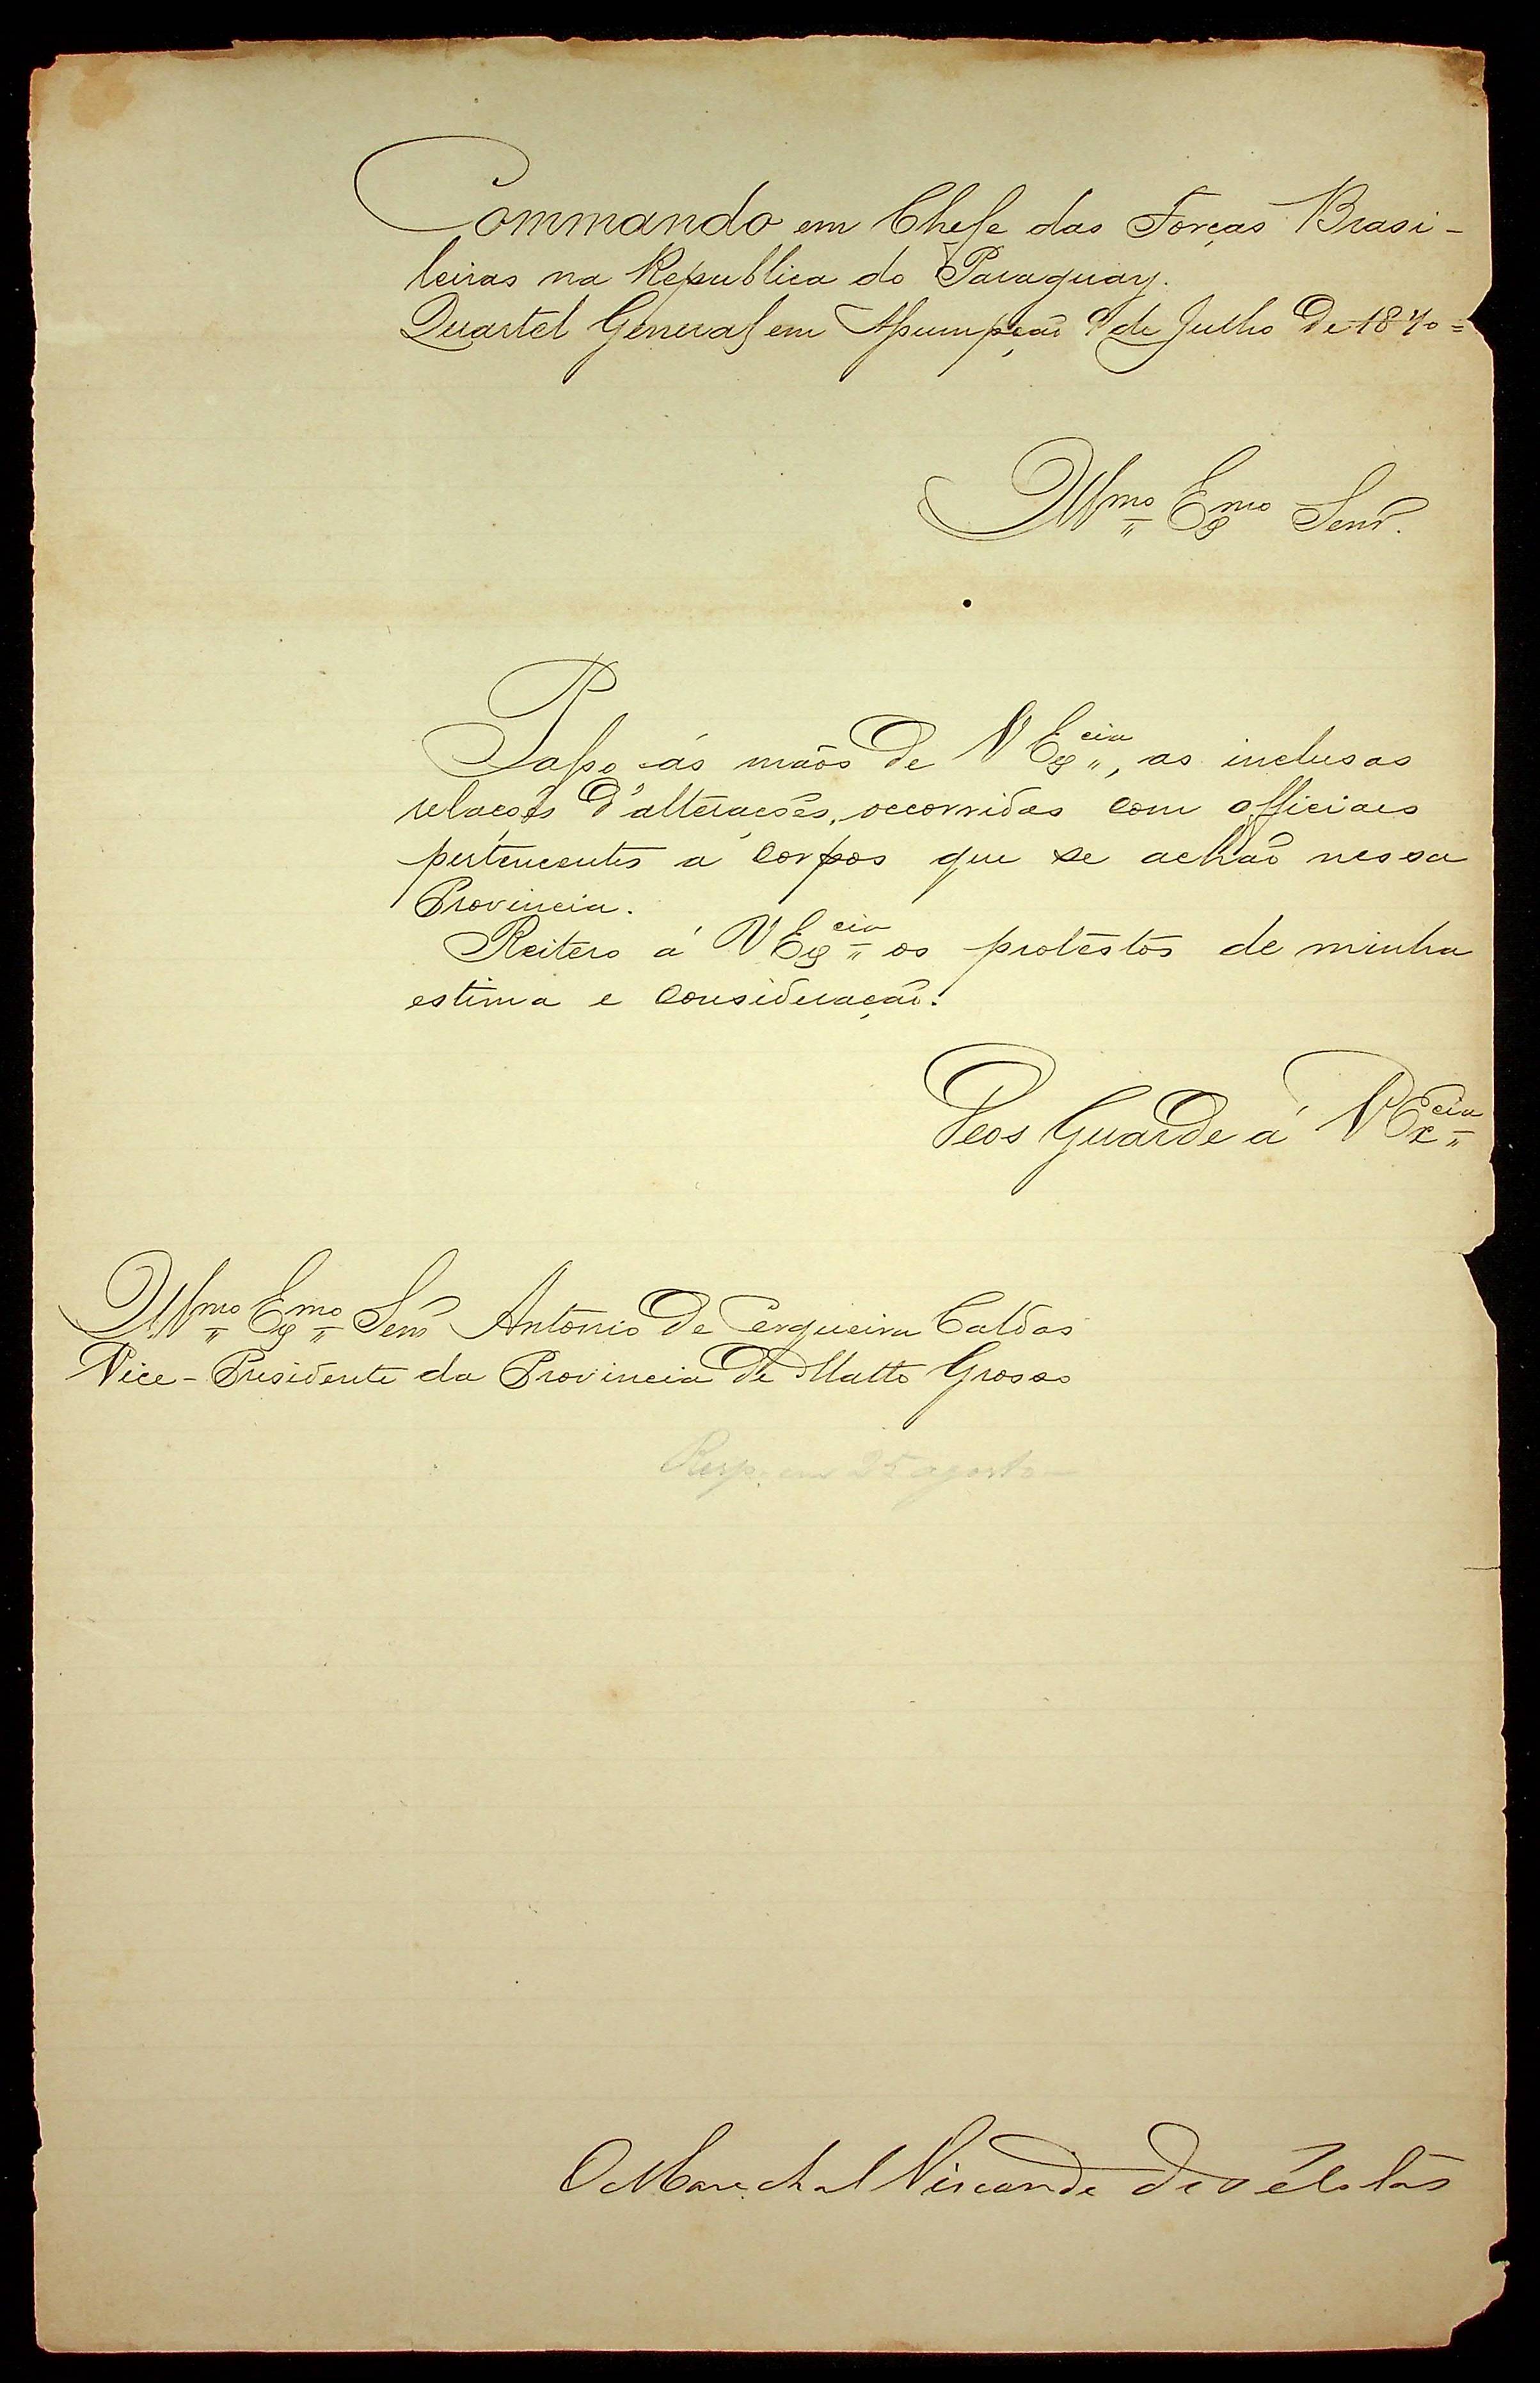 Commando em Chefe das Forças Brasi-
leiras na Republica do Paraguay.
Quartel General em Assumpção 9 de Julho de 1870=
Illmo Exmo Senr.
Passo ás mãos de V Excia, as inclusas
relações d'alterações, occorridas com officiaes
pertencentes a corpos que se achão nessa
Provincia.
Reitero á V Excia os protestos de minha
estima e consideração.
Deos Guarde á V Excia
Illmo Exmo Senr Antonio de Cerqueira Caldas
Vice-Presidente da Provincia de Matto Grosso
Resp. em 25 agosto
O Marechal Visconde de Pelotas